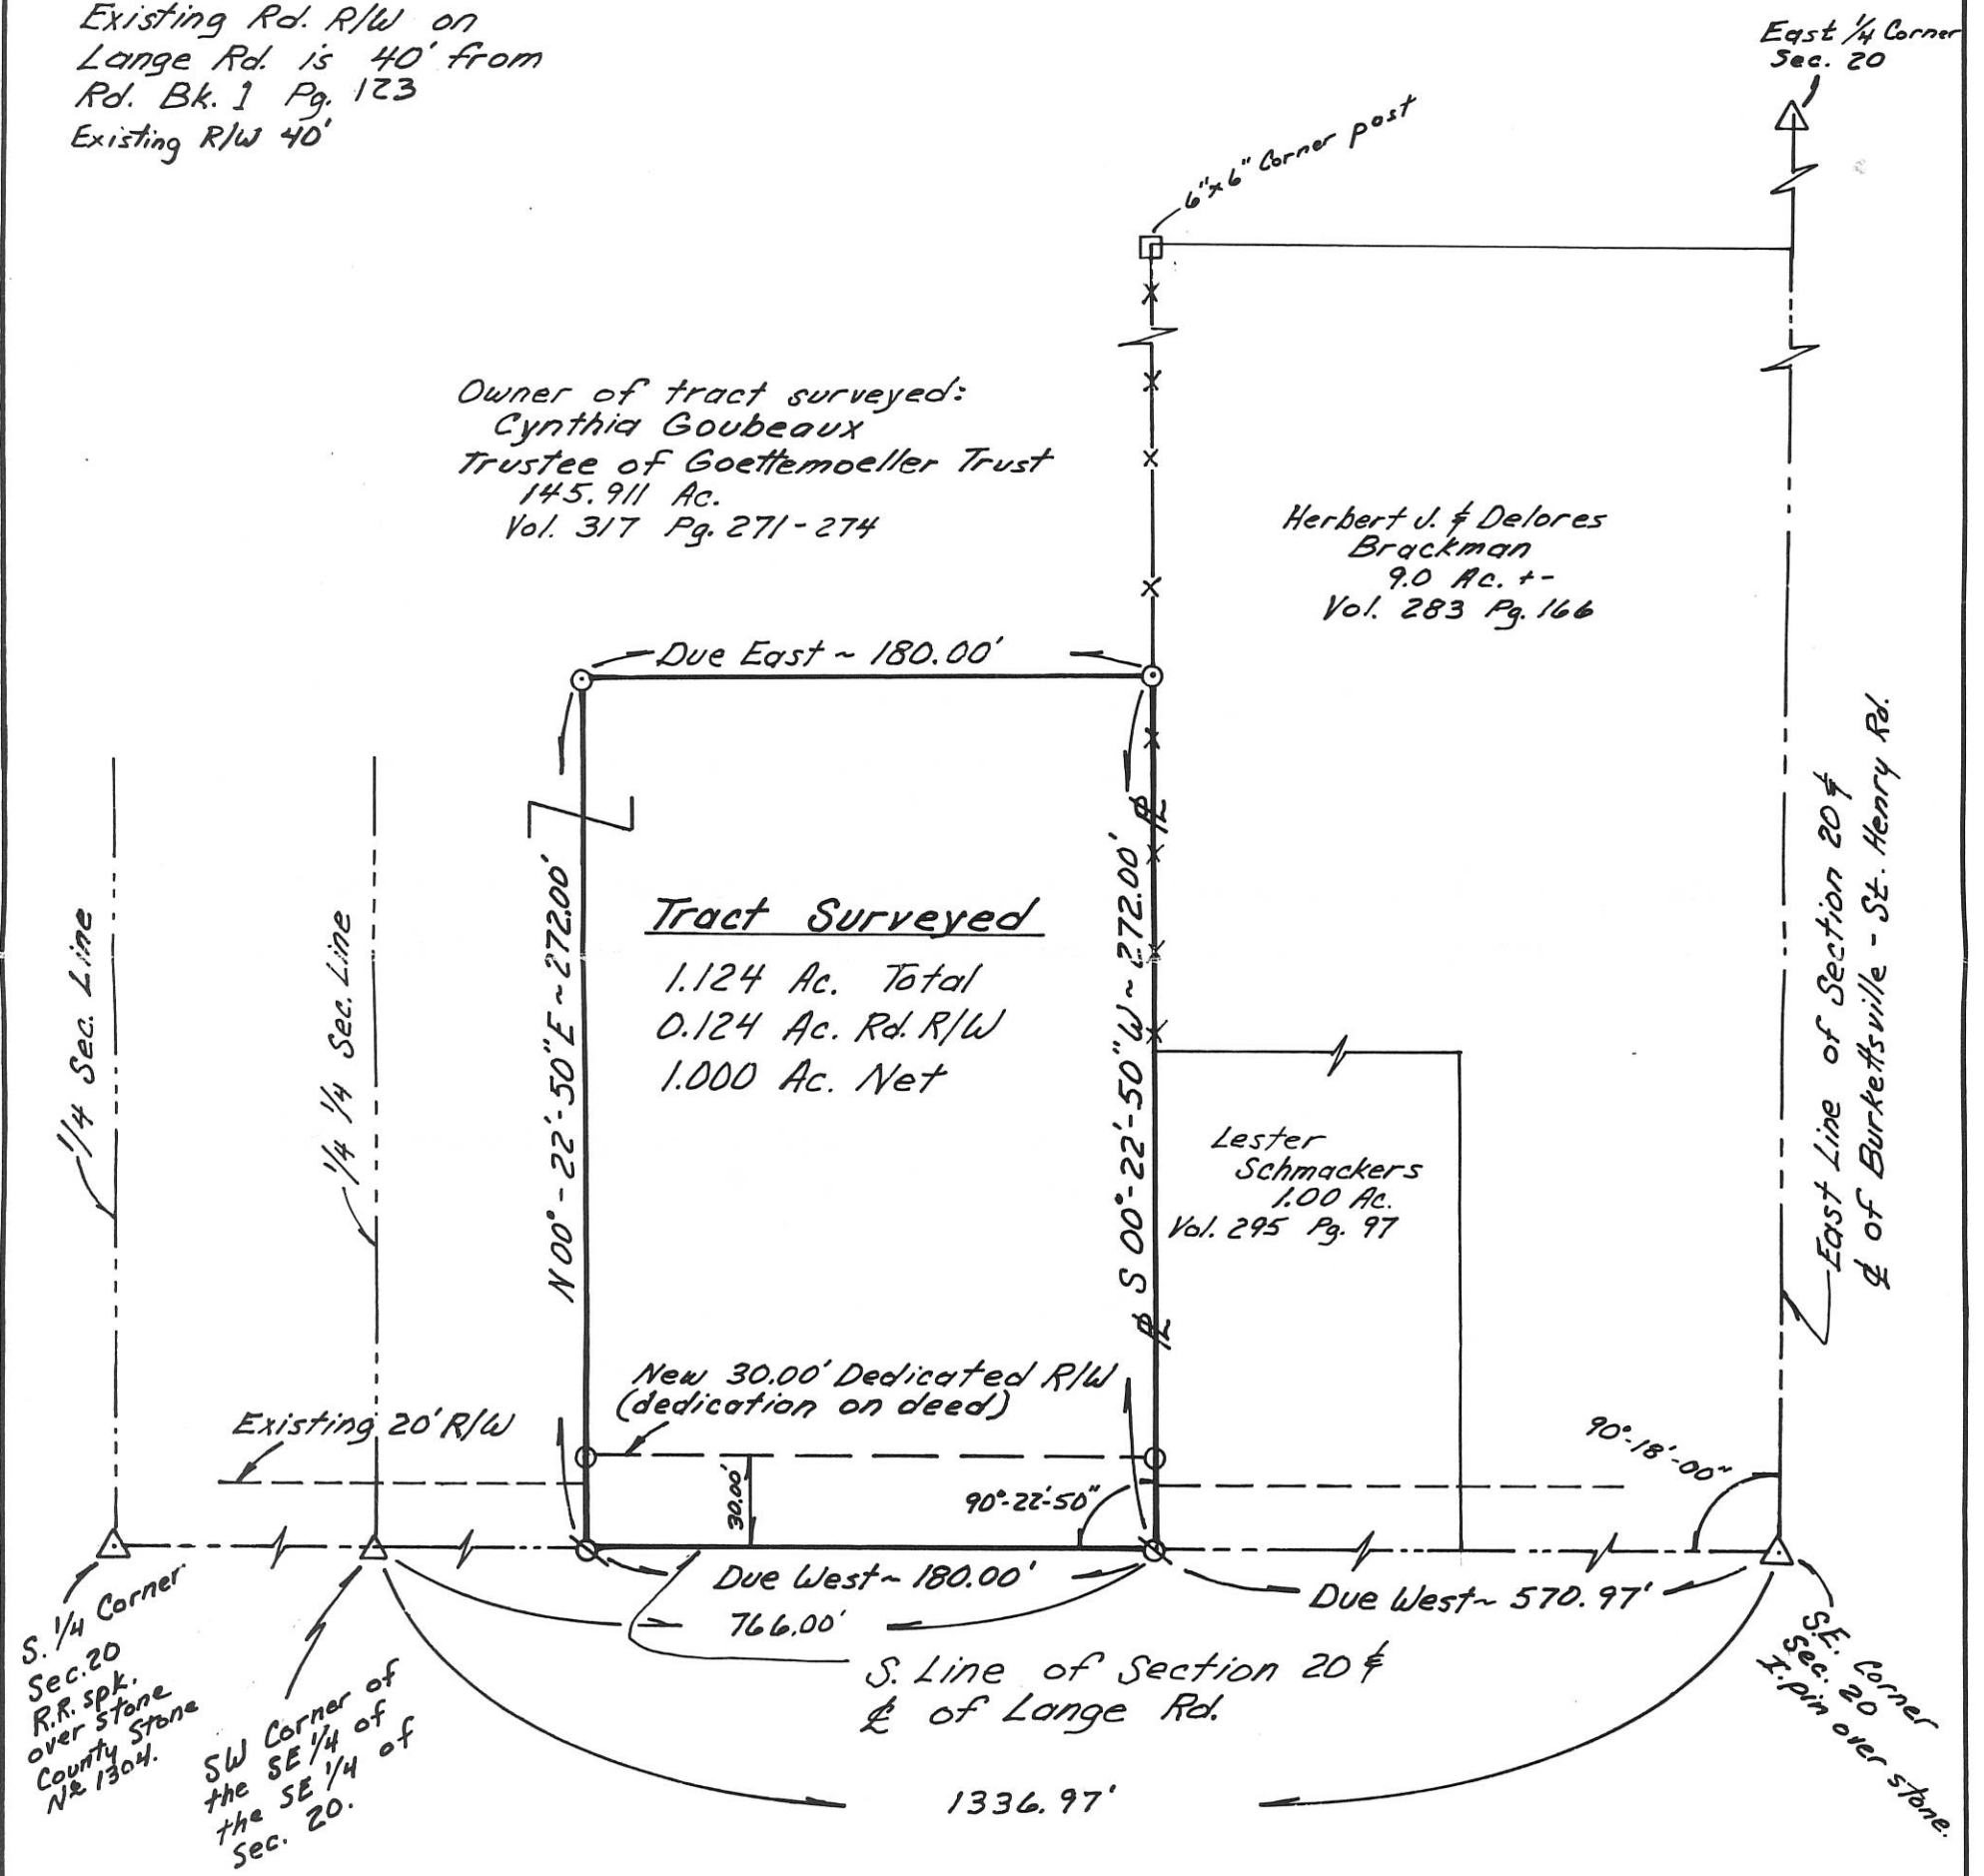 Existing Rd. R/W on
Lange Rd. is 40' from
Rd. Bk. 1 Pg. 123
Existing R/W 40'
East 1/4 Corner
Sec. 20
6"x6" Corner post
Owner of tract surveyed:
Cynthia Goubeaux
Trustee of Goettemoeller Trust
145.911 Ac.
Vol. 317 Pg. 271-274
Herbert J. & Delores
Brackman
9.0 Ac. +-
Vol. 283 Pg. 166
Due East ~ 180.00'
1/4 Sec. Line
1/4 1/4 Sec. Line
N 00°-22'-50" E ~ 272.00'
Tract Surveyed
1.124 Ac. Total
0.124 Ac. Rd. R/W
1.000 Ac. Net
℄ S 00°-22'-50" W ~ 272.00' ℄
Lester
Schmackers
1.00 Ac.
Vol. 295 Pg. 97
East Line of Section 20 &
℄ of Burkettsville - St. Henry Rd.
New 30.00' Dedicated R/W
(dedication on deed)
Existing 20' R/W
30.00'
90°-22'-50"
90°-18'-00"
Due West ~ 180.00'
766.00'
Due West ~ 570.97'
S. Line of Section 20 &
℄ of Lange Rd.
1336.97'
S. 1/4 Corner
Sec. 20
R.R. spk.
over stone
County Stone
No 1304.
SW Corner of
the SE 1/4 of
the SE 1/4 of
Sec. 20.
S.E. Corner
Sec. 20
I. pin over stone.